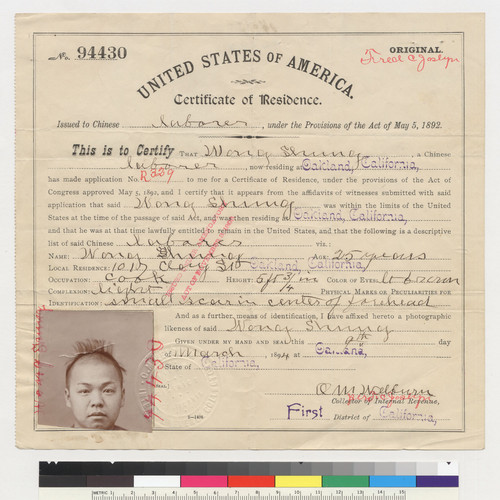 No. 94430
ORIGINAL.
Fred C. Joslyn
UNITED STATES OF AMERICA.
Certificate of Residence.
Issued to Chinese laborer, under the Provisions of the Act of May 5, 1892.
This is to Certify THAT Wong Shung, a Chinese
laborer, now residing at Oakland, California,
has made application No. R229 to me for a Certificate of Residence, under the provisions of the Act of
Congress approved May 5, 1892, and I certify that it appears from the affidavits of witnesses submitted with
said application that said Wong Shung was within the limits of the United
States at the time of the passage of said Act, and was then residing at Oakland, California,
and that he was at that time lawfully entitled to remain in the United States, and that the following is a descriptive
list of said Chinese laborer viz.:
NAME: Wong Shung AGE: 25 years
LOCAL RESIDENCE: 1017 Clay St Oakland, California,
OCCUPATION: Cook HEIGHT: 5 ft 3 1/4 in COLOR OF EYES: lt brown
COMPLEXION: light PHYSICAL MARKS OR PECULIARITIES FOR
IDENTIFICATION: small scar in center of forehead
And as a further means of identification, I have affixed hereto a photographic
likeness of said Wong Shung
GIVEN UNDER MY HAND AND SEAL this 9th day
of March, 1894, at Oakland,
State of California,
[SEAL.]
O M Welburn
Collector of Internal Revenue,
First District of California,
Wong Shung
94430
METRIC 1